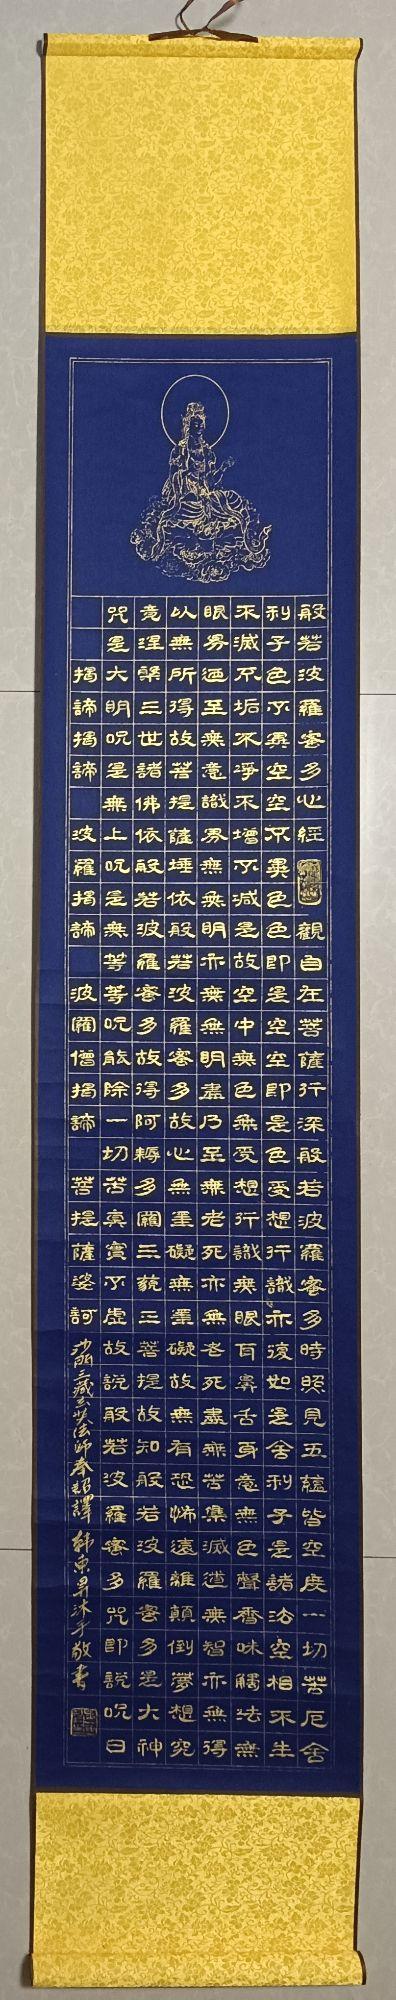 般若波羅蜜多心經 觀自在菩薩行深般若波羅蜜多時照見五蘊皆空度一切苦厄舍
利子色不異空空不異色色即是空空即是色受想行識亦復如是舍利子是諸法空相不生
不滅不垢不淨不增不減是故空中無色無受想行識無眼耳鼻舌身意無色聲香味觸法無
眼界迺至無意識界無無明亦無無明盡乃至無老死亦無老死盡無苦集滅道無智亦無得
以無所得故菩提薩埵依般若波羅蜜多故心無罣礙無罣礙故無有恐怖遠離顛倒夢想究
竟涅槃三世諸佛依般若波羅蜜多故得阿耨多羅三藐三菩提故知般若波羅蜜多是大神
咒是大明咒是無上咒是無等等咒能除一切苦真實不虛故說般若波羅蜜多咒即說咒曰
揭諦揭諦 波羅揭諦 波羅僧揭諦 菩提薩婆訶 沙門三藏玄奘法師奉詔譯 韓東昇沐手敬書